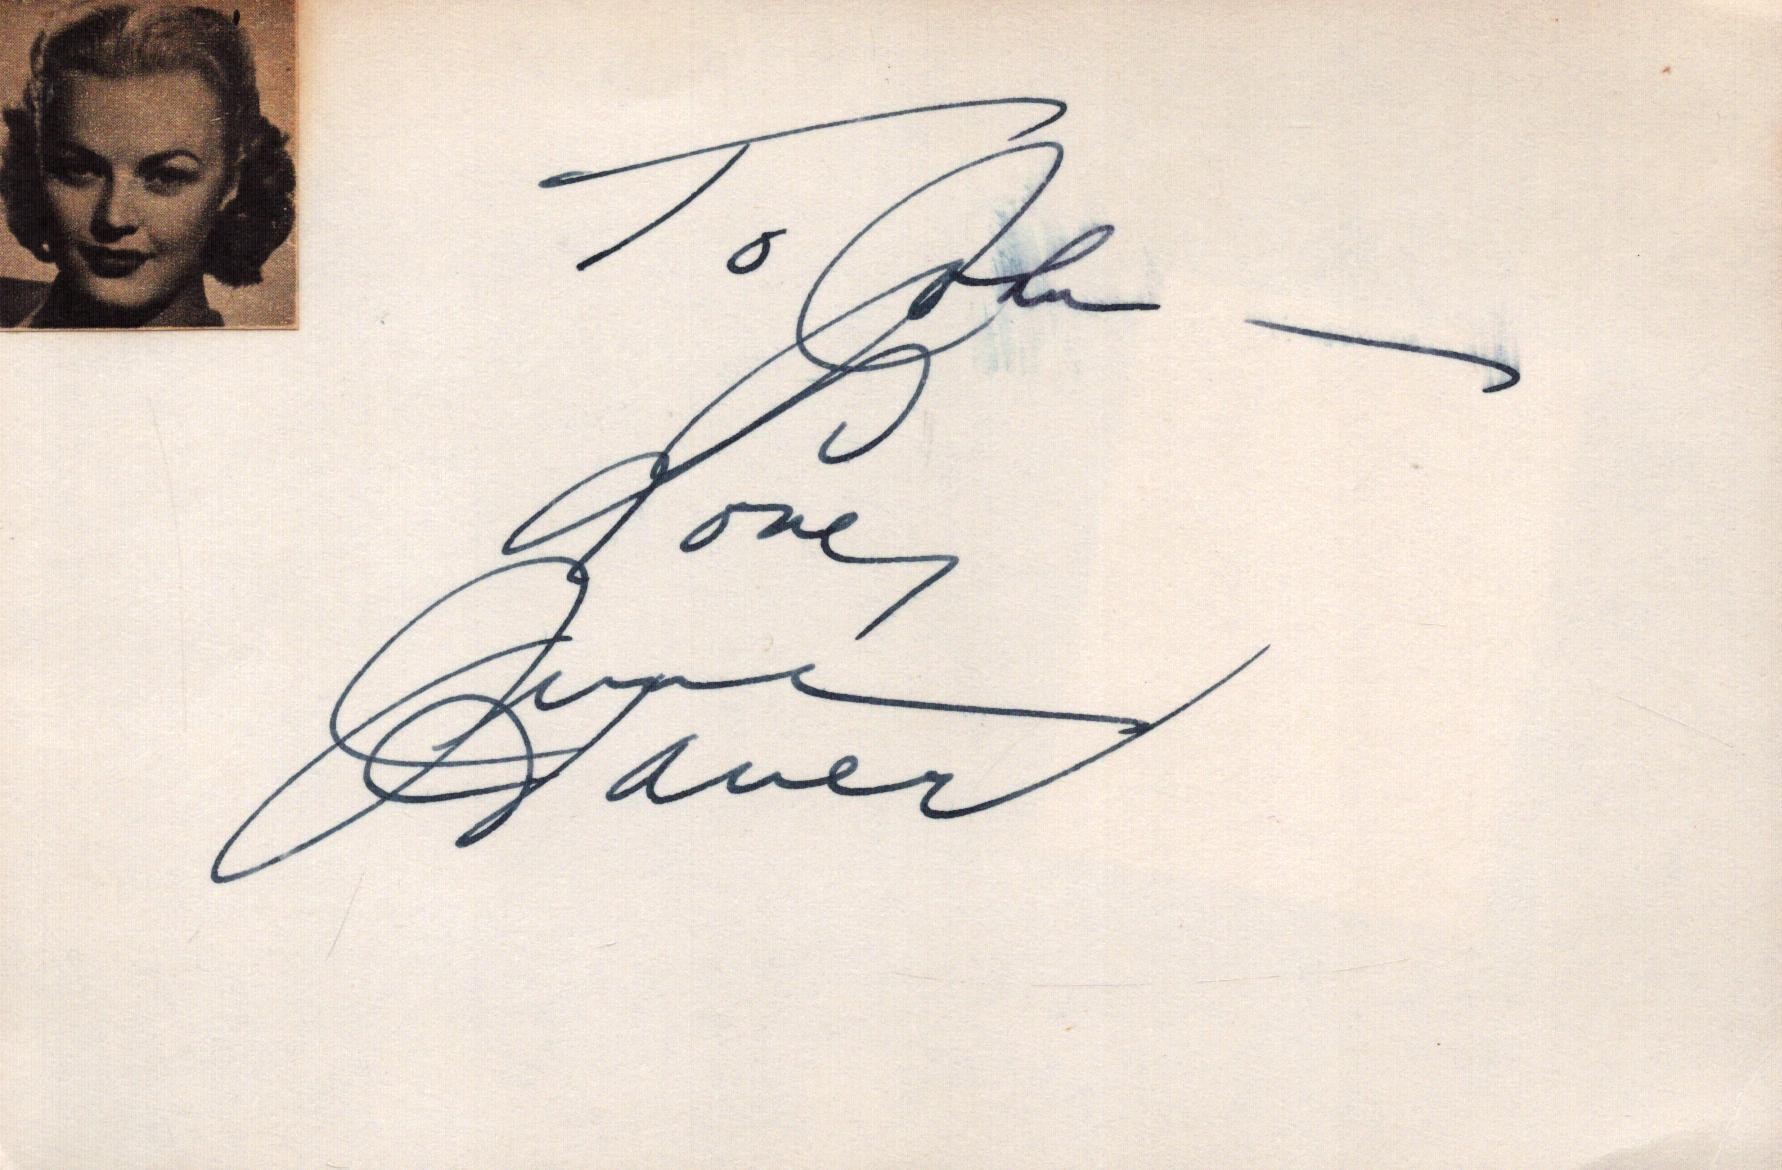 To John —
Love,
June
Haver